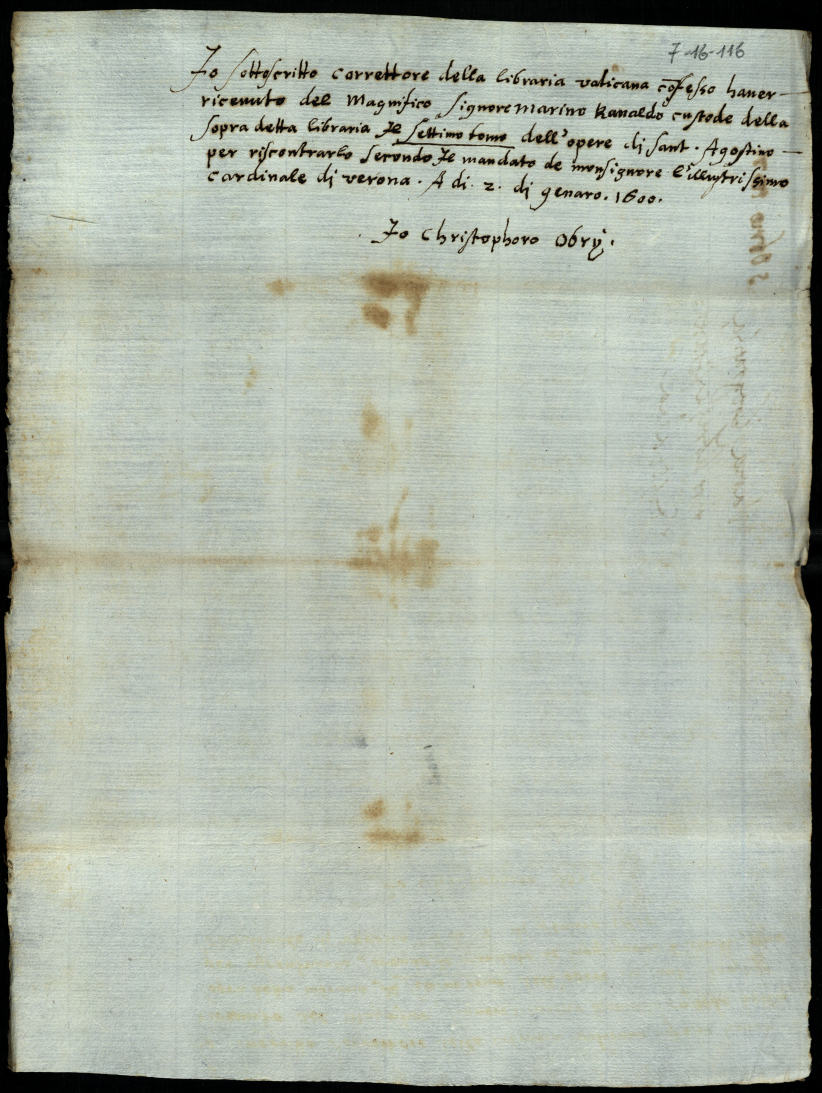 7-16-116
Io sottoscritto correttore della libraria vaticana cōfesso haver
ricevuto del Magnifico Signore Marino Ranaldo custode della
sopra detta libraria Il settimo tomo dell'opere di sant. Agostino
per riscontrarlo secondo Il mandato de monsignore l'illustrissimo
cardinale di verona. A di. 2. di genaro. 1600.
Io Christophoro Obrÿ.